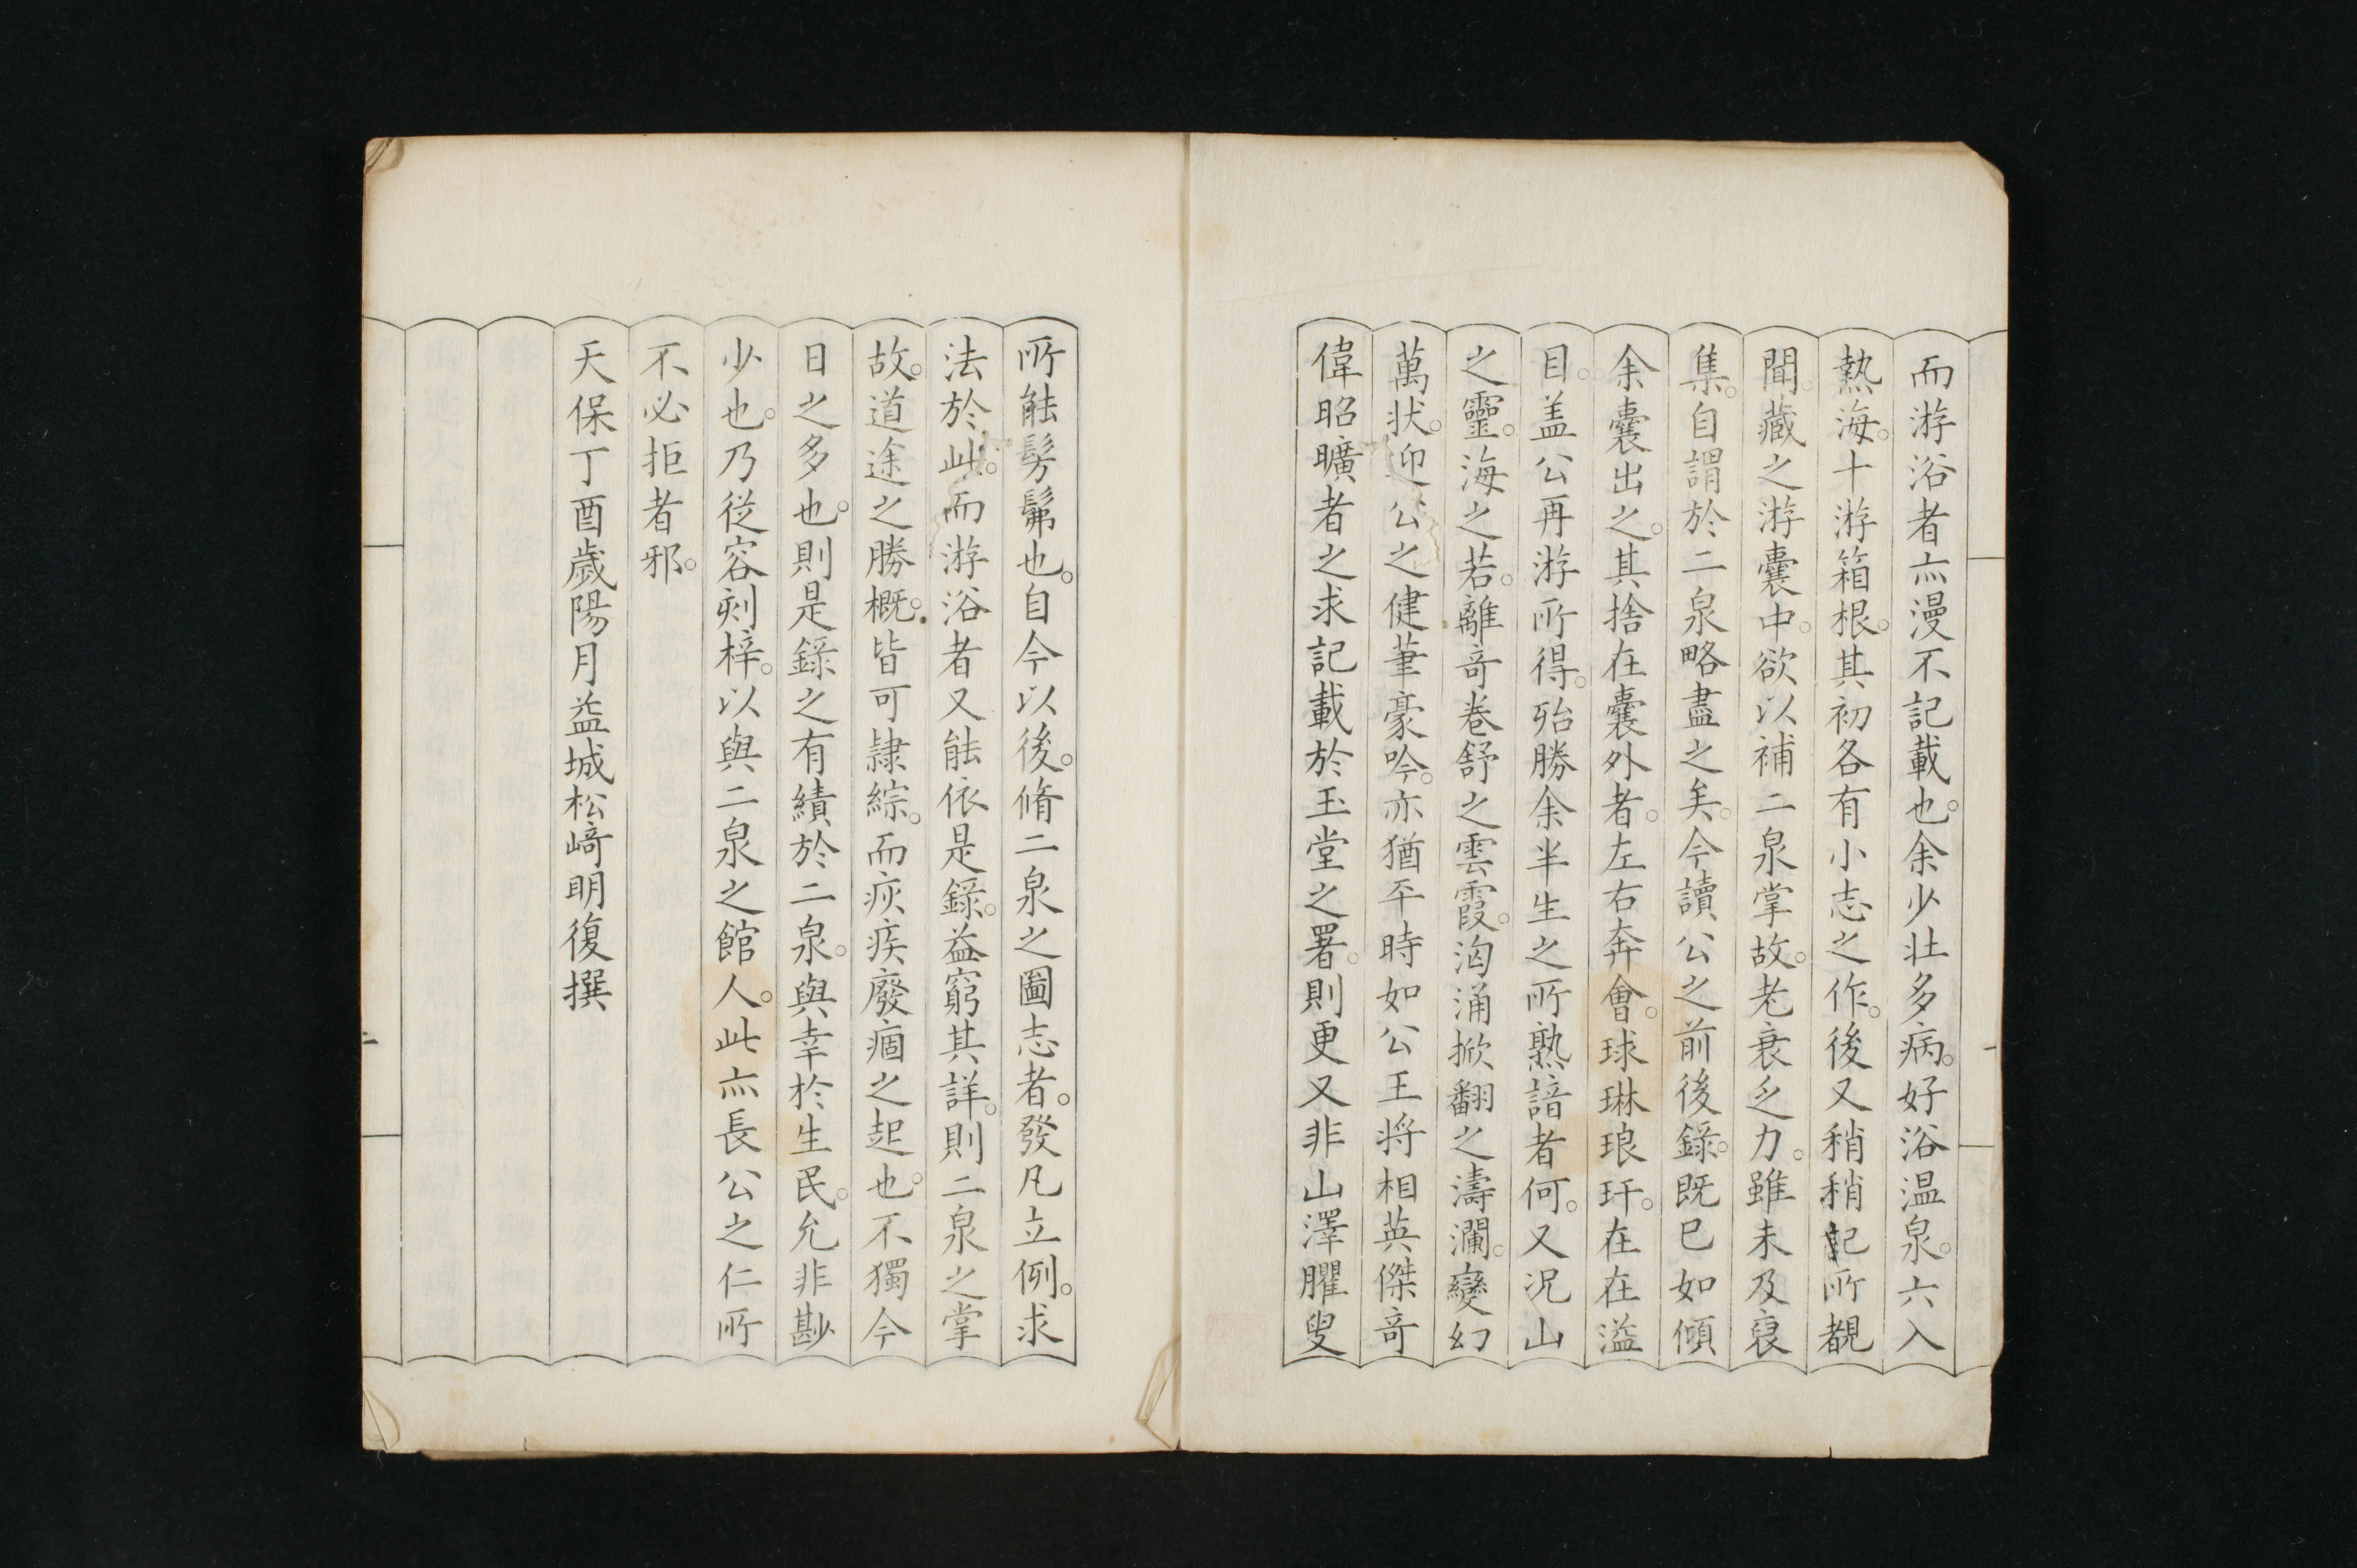 而游浴者亦漫不記載也。余少壯多病。好浴温泉。六入
熱海。十游箱根。其初各有小志之作。後又稍稍記所覩
聞。藏之游囊中。欲以補二泉掌故。老衰乏力。雖未及裒
集。自謂於二泉略盡之矣。今讀公之前後録。既已如傾
余囊出之。其捨在囊外者。左右奔會。球琳琅玕。在在溢
目。盖公再游所得。殆勝余半生之所熟諳者何。又况山
之靈。海之若。離奇卷舒之雲霞。洶涌掀翻之濤瀾。變幻
萬状。迎公之健筆豪吟。亦猶平時如公王将相英傑奇
偉昭曠者之求記載於玉堂之署。則更又非山澤臞叟
所能髣髴也。自今以後。脩二泉之圖志者。發凡立例。求
法於此。而游浴者又能依是録。益窮其詳。則二泉之掌
故。道途之勝概。皆可隷綜。而疢疾廢痼之起也。不獨今
日之多也。則是録之有績於二泉。與幸於生民。允非尠
少也。乃従容刻梓。以與二泉之館人。此亦長公之仁所
不必拒者邪。
天保丁酉歳陽月益城松﨑明復撰